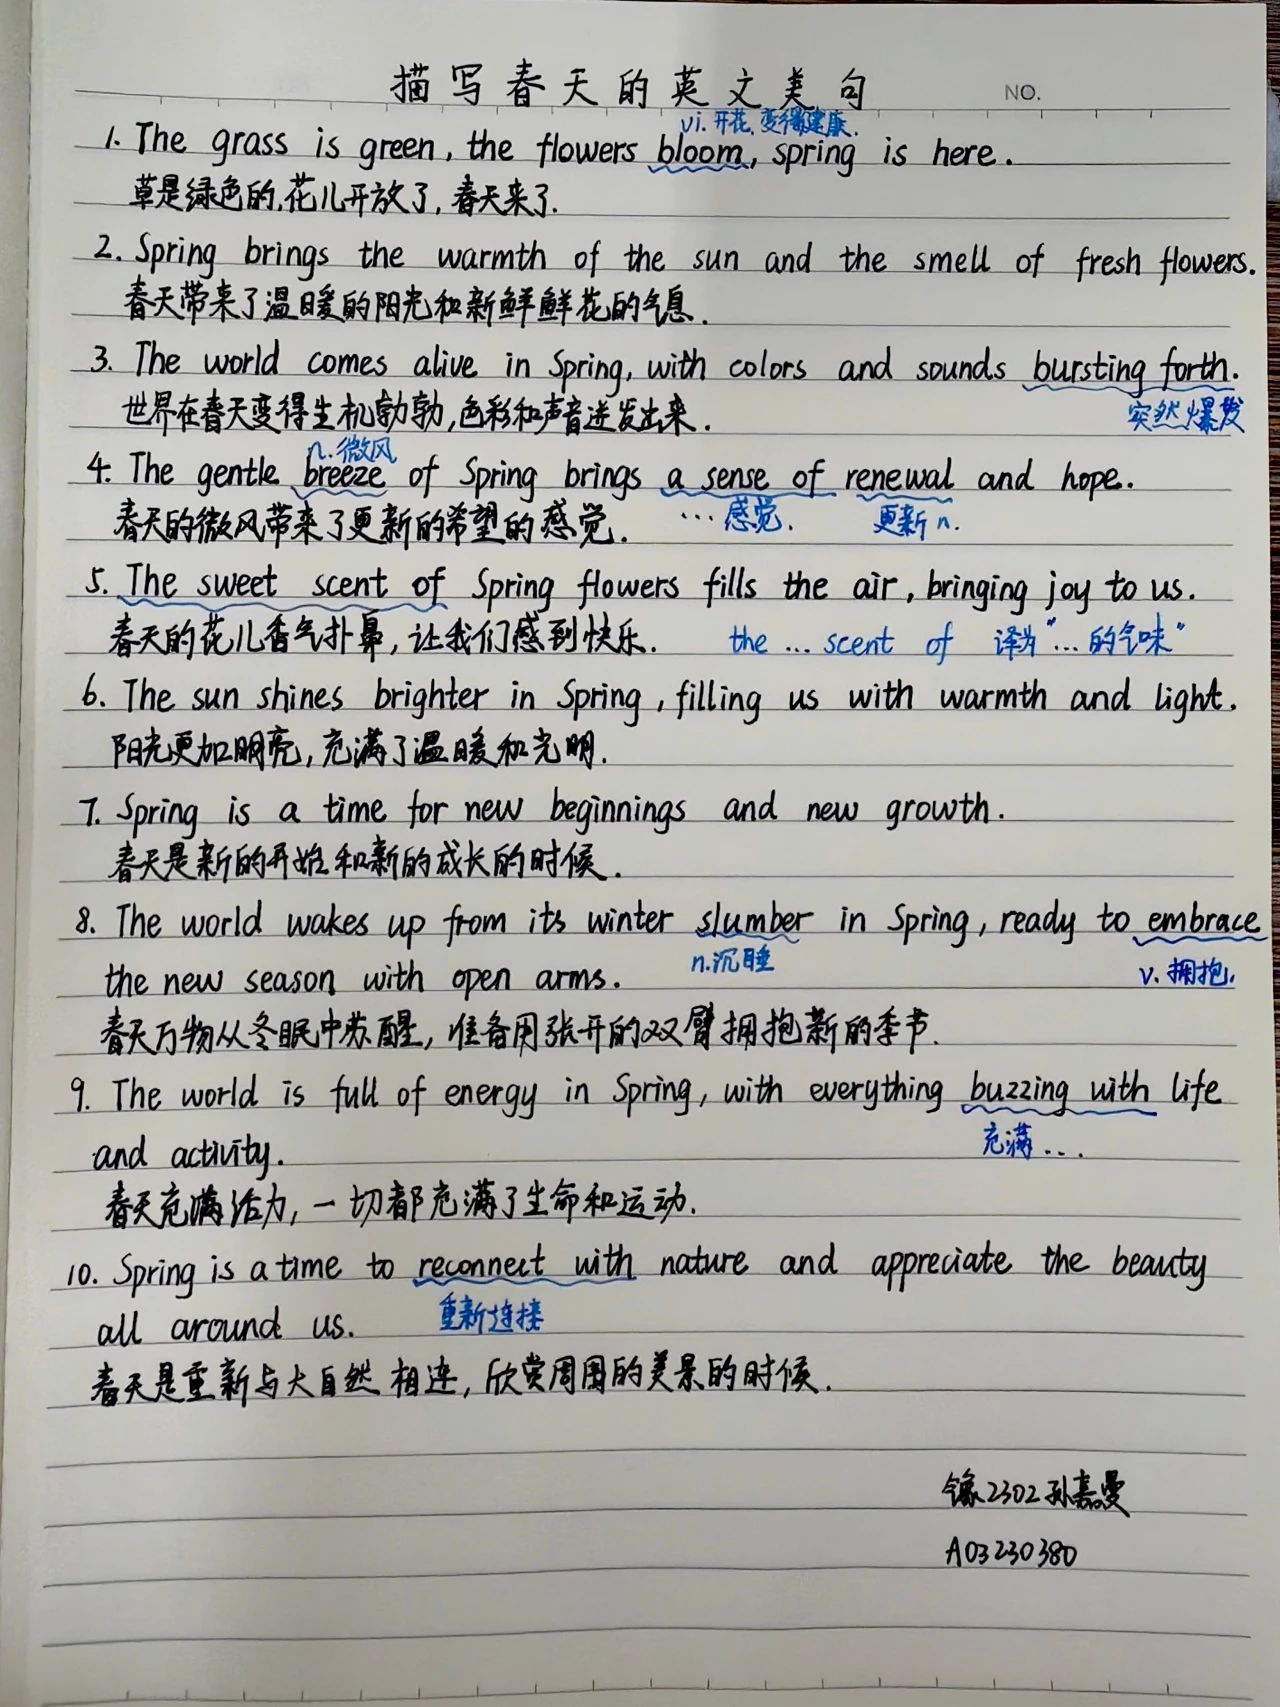 描写春天的英文美句
NO.
vi. 开花, 变得健康.
1. The grass is green, the flowers bloom, spring is here.
草是绿色的,花儿开放了,春天来了.
2. Spring brings the warmth of the sun and the smell of fresh flowers.
春天带来了温暖的阳光和新鲜鲜花的气息.
3. The world comes alive in Spring, with colors and sounds bursting forth.
世界在春天变得生机勃勃,色彩和声音迸发出来.
突然爆发
n.微风
4. The gentle breeze of Spring brings a sense of renewal and hope.
春天的微风带来了更新的希望的感觉.
…感觉.
更新 n.
5. The sweet scent of Spring flowers fills the air, bringing joy to us.
春天的花儿香气扑鼻,让我们感到快乐.
the … scent of 译为"…的气味"
6. The sun shines brighter in Spring, filling us with warmth and light.
阳光更加明亮,充满了温暖和光明.
7. Spring is a time for new beginnings and new growth.
春天是新的开始和新的成长的时候.
8. The world wakes up from its winter slumber in Spring, ready to embrace
the new season with open arms.
n.沉睡
v. 拥抱.
春天万物从冬眠中苏醒,准备用张开的双臂拥抱新的季节.
9. The world is full of energy in Spring, with everything buzzing with life
and activity.
充满…
春天充满活力,一切都充满了生命和运动.
10. Spring is a time to reconnect with nature and appreciate the beauty
all around us.
重新连接
春天是重新与大自然相连,欣赏周围的美景的时候.
2302 孙嘉曼
A03230380